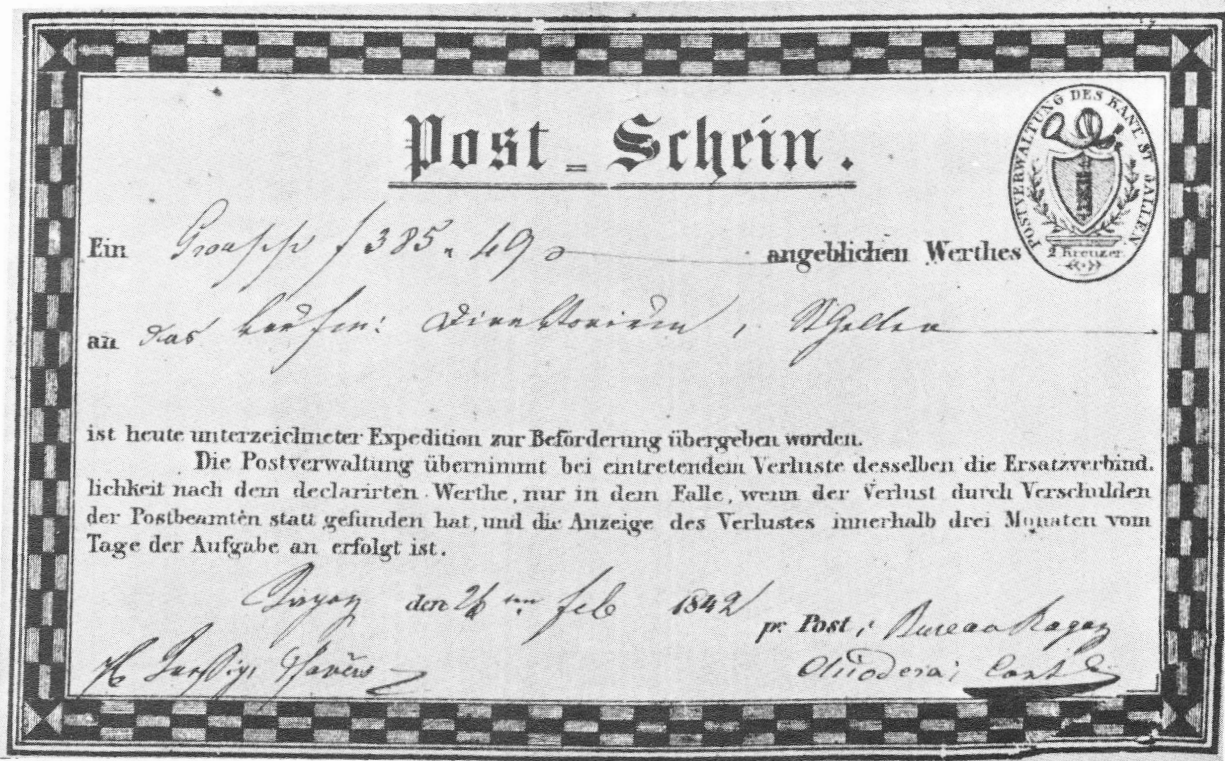 Post-Schein.
POSTVERWALTUNG DES KANT. ST GALLEN
2 Kreuzer
Ein f 385 " 49 angeblichen Werthes
an das Kaufm: Direktorium, St Gallen
ist heute unterzeichneter Expedition zur Beförderung übergeben worden.
Die Postverwaltung übernimmt bei eintretendem Verluste desselben die Ersatzverbind.
lichkeit nach dem declarirten Werthe, nur in dem Falle, wenn der Verlust durch Verschulden
der Postbeamten statt gefunden hat, und die Anzeige des Verlustes innerhalb drei Monaten vom
Tage der Aufgabe an erfolgt ist.
Ragaz den 26 ten Feb 1842
pr Post: Bureau Ragaz